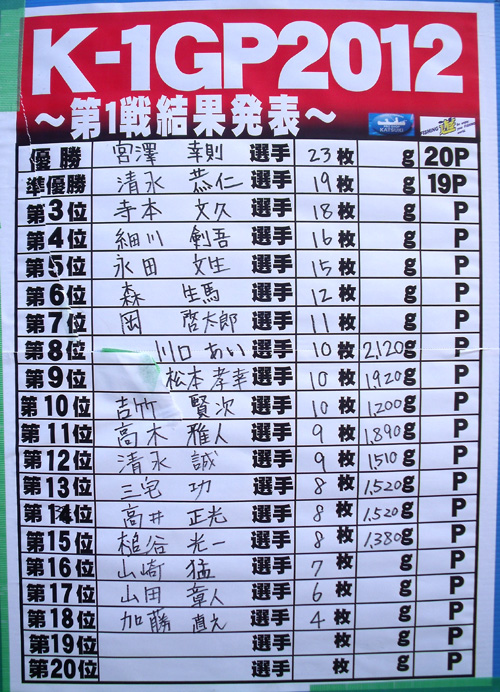 K-1GP2012
～第1戦結果発表～
KATSUKI
優勝 宮澤 幸則 選手 23枚 g 20P
準優勝 清永 恭仁 選手 19枚 g 19P
第3位 寺本 文久 選手 18枚 g P
第4位 細川 剣吾 選手 16枚 g P
第5位 永田 文生 選手 15枚 g P
第6位 森 生馬 選手 12枚 g P
第7位 岡 啓太郎 選手 11枚 g P
第8位 川口 あい 選手 10枚 2,120g P
第9位 松本 孝幸 選手 10枚 1920g P
第10位 吉竹 賢次 選手 10枚 1200g P
第11位 高木 雅人 選手 9枚 1,890g P
第12位 清永 誠 選手 9枚 1,510g P
第13位 三宅 功 選手 8枚 1,520g P
第14位 高井 正光 選手 8枚 1,520g P
第15位 槌谷 光一 選手 8枚 1,380g P
第16位 山崎 猛 選手 7枚 g P
第17位 山田 章人 選手 6枚 g P
第18位 加藤 直元 選手 4枚 g P
第19位 選手 枚 g P
第20位 選手 枚 g P